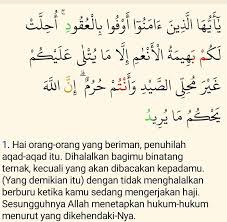 يَٰٓأَيُّهَا ٱلَّذِينَ ءَامَنُوٓا۟ أَوْفُوا۟ بِٱلْعُقُودِ ۚ أُحِلَّتْ
لَكُم بَهِيمَةُ ٱلْأَنْعَٰمِ إِلَّا مَا يُتْلَىٰ عَلَيْكُمْ
غَيْرَ مُحِلِّى ٱلصَّيْدِ وَأَنتُمْ حُرُمٌ ۗ إِنَّ ٱللَّهَ
يَحْكُمُ مَا يُرِيدُ
1. Hai orang-orang yang beriman, penuhilah
aqad-aqad itu. Dihalalkan bagimu binatang
ternak, kecuali yang akan dibacakan kepadamu.
(Yang demikian itu) dengan tidak menghalalkan
berburu ketika kamu sedang mengerjakan haji.
Sesungguhnya Allah menetapkan hukum-hukum
menurut yang dikehendaki-Nya.